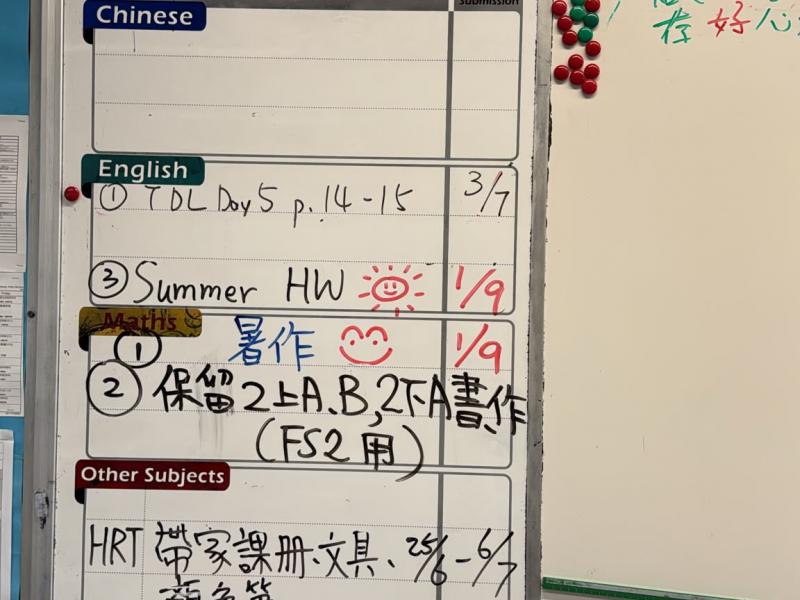 Submission
存好心
Chinese
English
① TDL Day 5 p.14-15 3/7
③ Summer HW 1/9
Maths
① 暑作 1/9
② 保留2上A、B,2下A書、作
(FS2用)
Other Subjects
HRT 帶家課冊、文具、25/6-6/7
顏色筆